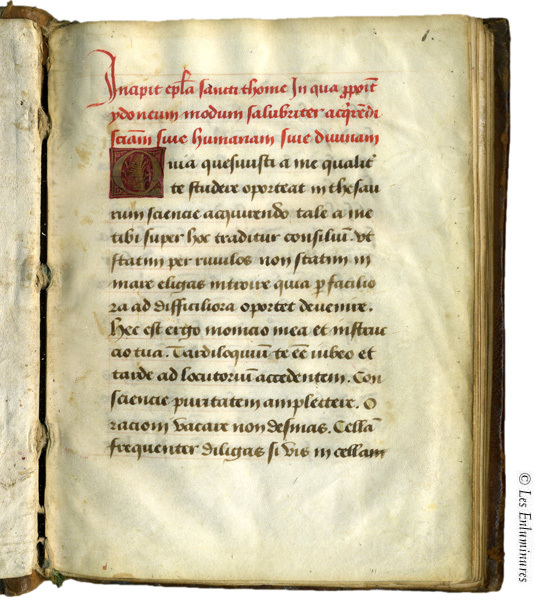 1.
Incipit epl̃a sancti thome In qua ꝓpoĩt
ydoneum modum salubriter acq̃rẽdi
sciãm siue humanam siue diuinam
Quia quesiuisti a me qualit̃
te studere oporteat in thesau
rum sciencie acquirendo tale a me
tibi super hoc traditur consiliũ. Vt
statim per riuulos non statim in
mare eligas introire quia ꝑ facilio
ra ad difficiliora oportet deuenire.
Hec est ergo monicio mea et instruc
cio tua. Tardiloquium te eẽ iubeo et
tarde ad locutorium accedentem. Con
sciencie puritatem amplectere. O
racioni vacare non desinas. Cellã
frequenter diligas si vis in cellam
© Les Enluminures